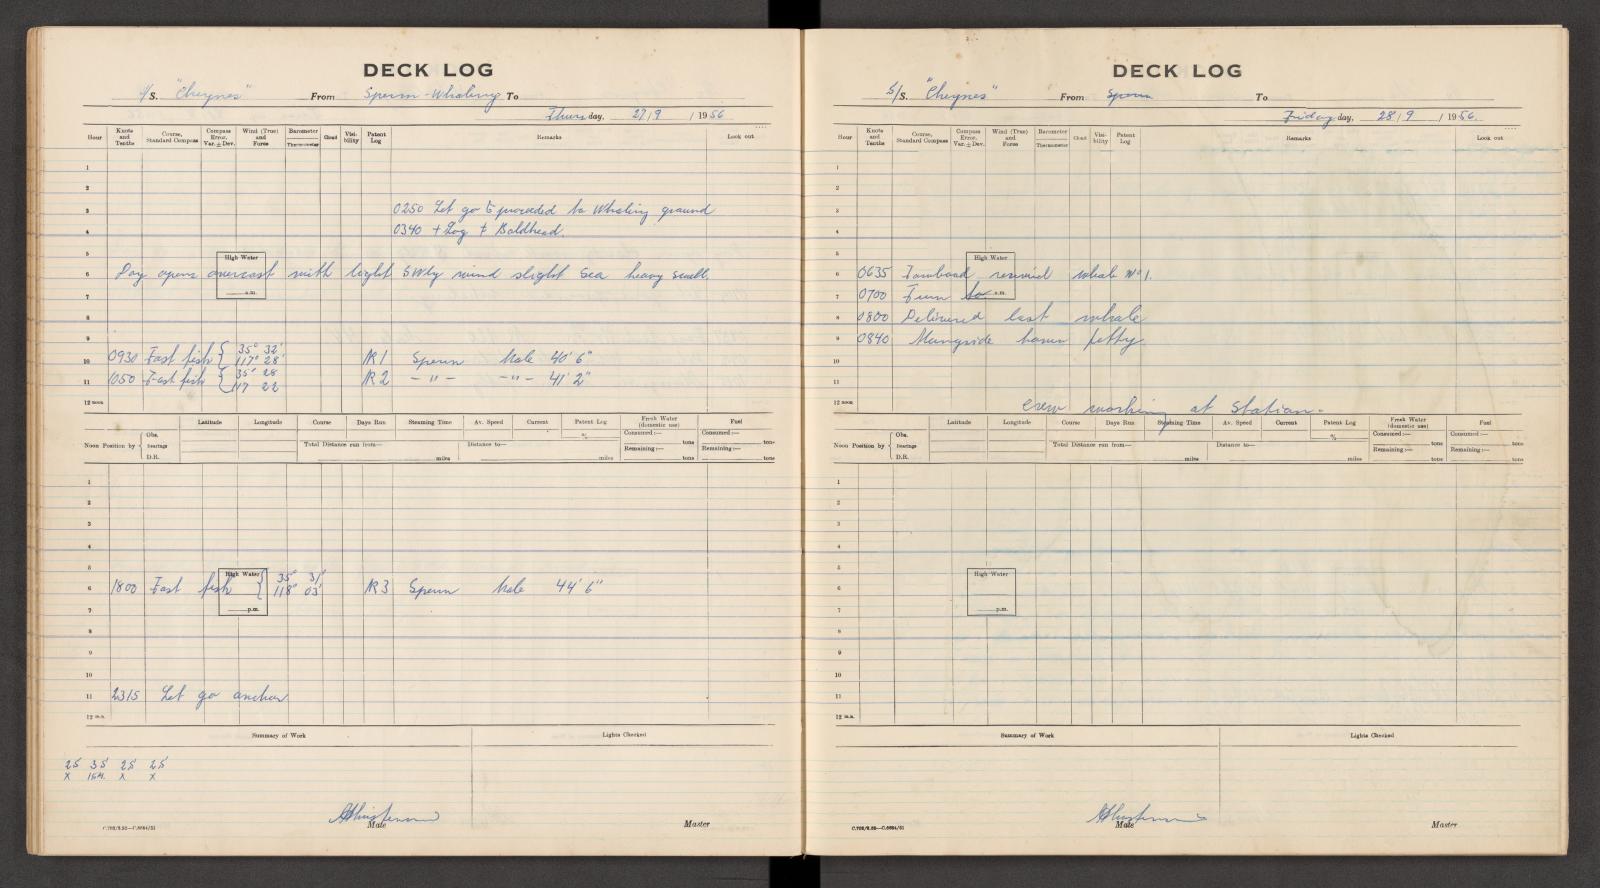 DECK LOG
S/S. "Cheynes" From Sperm-Whaling To
Thursday, 27/9 / 1956
Hour Knots and Tenths Course, Standard Compass Compass Error, Var. ± Dev. Wind (True) and Force Barometer Thermometer Cloud Visibility Patent Log Remarks Look out
1
2
3 0250 Let go & proceeded to Whaling ground
4 0340 + Log ‡ Baldhead.
5 High Water
6 Day opens overcast with light SWly wind slight Sea heavy swell.
a.m.
7
8
9
10 0930 Fast fish { 35° 32' 117° 28' No 1 Sperm Male 40' 6"
11 1050 Fast fish { 35° 28 117 22 No 2 - " - - " - 41' 2"
12 noon
Noon Position by Obs. Bearings D.R. Latitude Longitude Course Days Run Steaming Time Av. Speed Current Patent Log Fresh Water (domestic use) Fuel
% Consumed :— tons Consumed :— tons
Total Distance run from— miles Distance to— miles Remaining :— tons Remaining :— tons
1
2
3
4
5 High Water
6 1800 Fast fish { 35° 31' 118° 03' No 3 Sperm Male 44' 6"
7 p.m.
8
9
10
11 2315 Let go anchor
12 m.n.
Summary of Work Lights Checked
25 35 25 25
X X X
Mate Master
C.702/8.52—C.8664/51
DECK LOG
S/S. "Cheynes" From Sperm To
Friday day, 28/9 / 1956.
Hour Knots and Tenths Course, Standard Compass Compass Error, Var. ± Dev. Wind (True) and Force Barometer Thermometer Cloud Visibility Patent Log Remarks Look out
1
2
3
4
5 High Water
6 0635 received whale No 1.
7 0700 Turn to a.m.
8 0800 Delivered last whale
9 0840 Alongside town jetty.
10
11
12 noon crew working at Station.
Noon Position by Obs. Bearings D.R. Latitude Longitude Course Days Run Steaming Time Av. Speed Current Patent Log Fresh Water (domestic use) Fuel
% Consumed :— tons Consumed :— tons
Total Distance run from— miles Distance to— miles Remaining :— tons Remaining :— tons
1
2
3
4
5 High Water
6
7 p.m.
8
9
10
11
12 m.n.
Summary of Work Lights Checked
Mate Master
C.702/8.52—C.8664/51